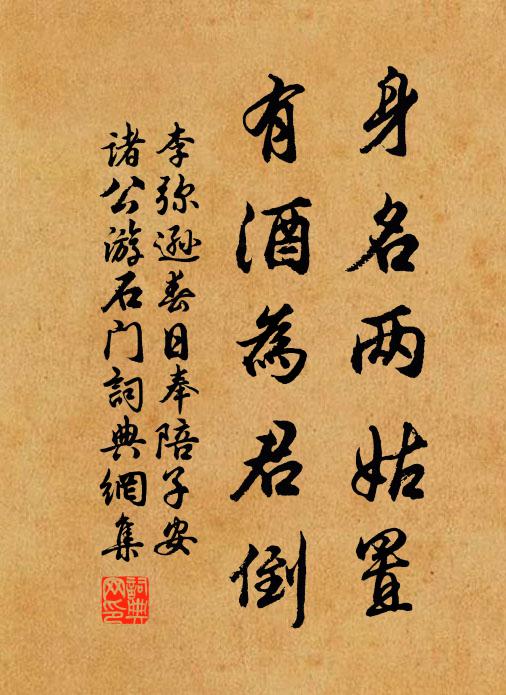 身名两姑置
有酒為君倒
李弥遜春日奉陪子安
诸公游石门詞典網集
詞典網印